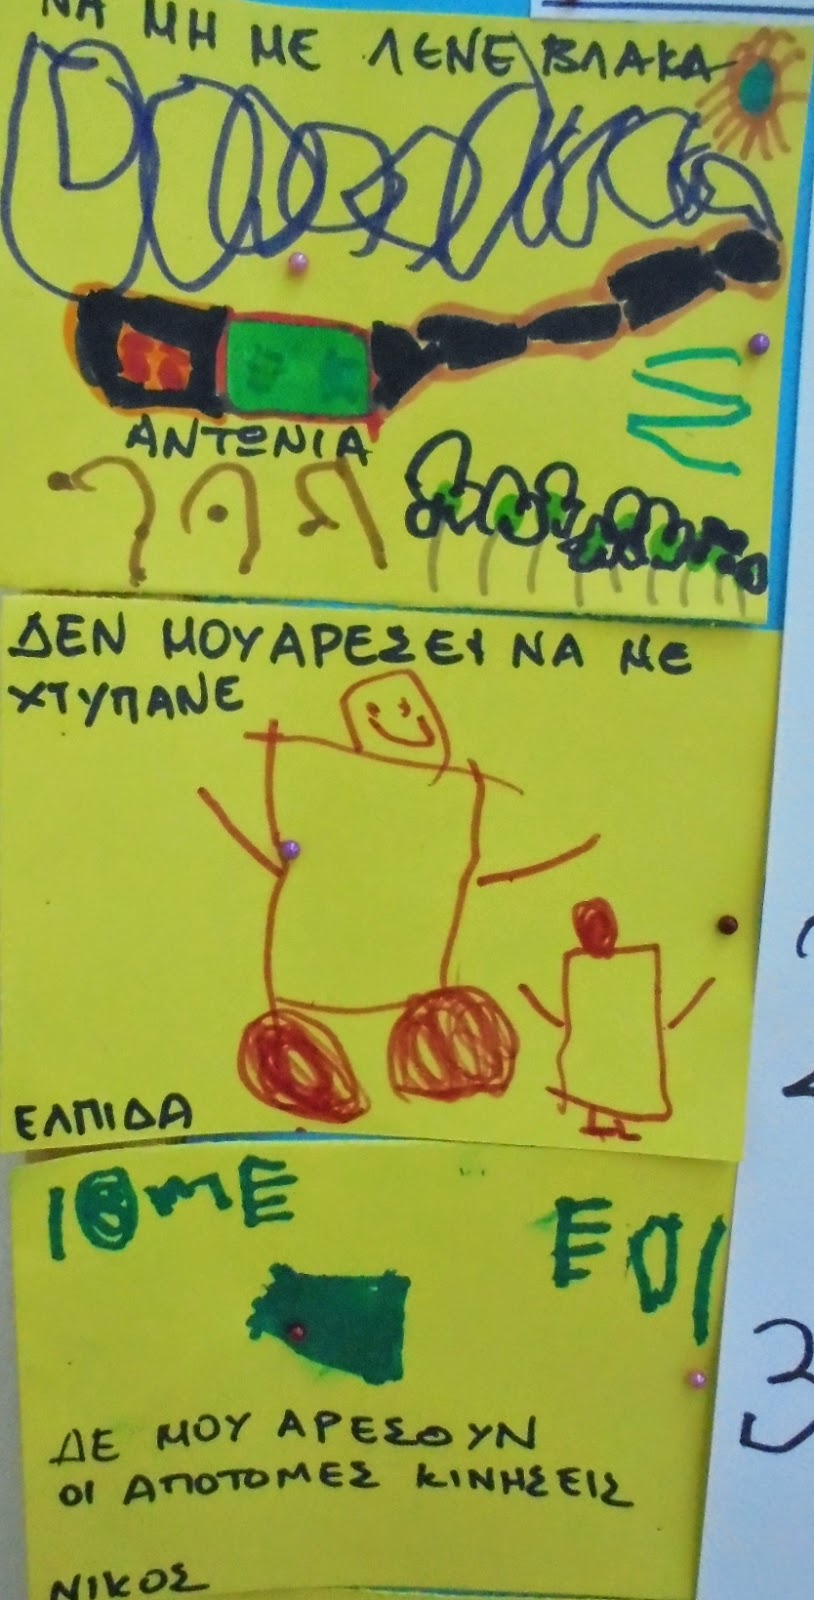 ΝΑ ΜΗ ΜΕ ΛΕΝΕ ΒΛΑΚΑ
ΑΝΤΩΝΙΑ
ΔΕΝ ΜΟΥ ΑΡΕΣΕΙ ΝΑ ΜΕ
ΧΤΥΠΑΝΕ
ΕΛΠΙΔΑ
ΔΕ ΜΟΥ ΑΡΕΣΟΥΝ
ΟΙ ΑΠΟΤΟΜΕΣ ΚΙΝΗΣΕΙΣ
ΝΙΚΟΣ
3